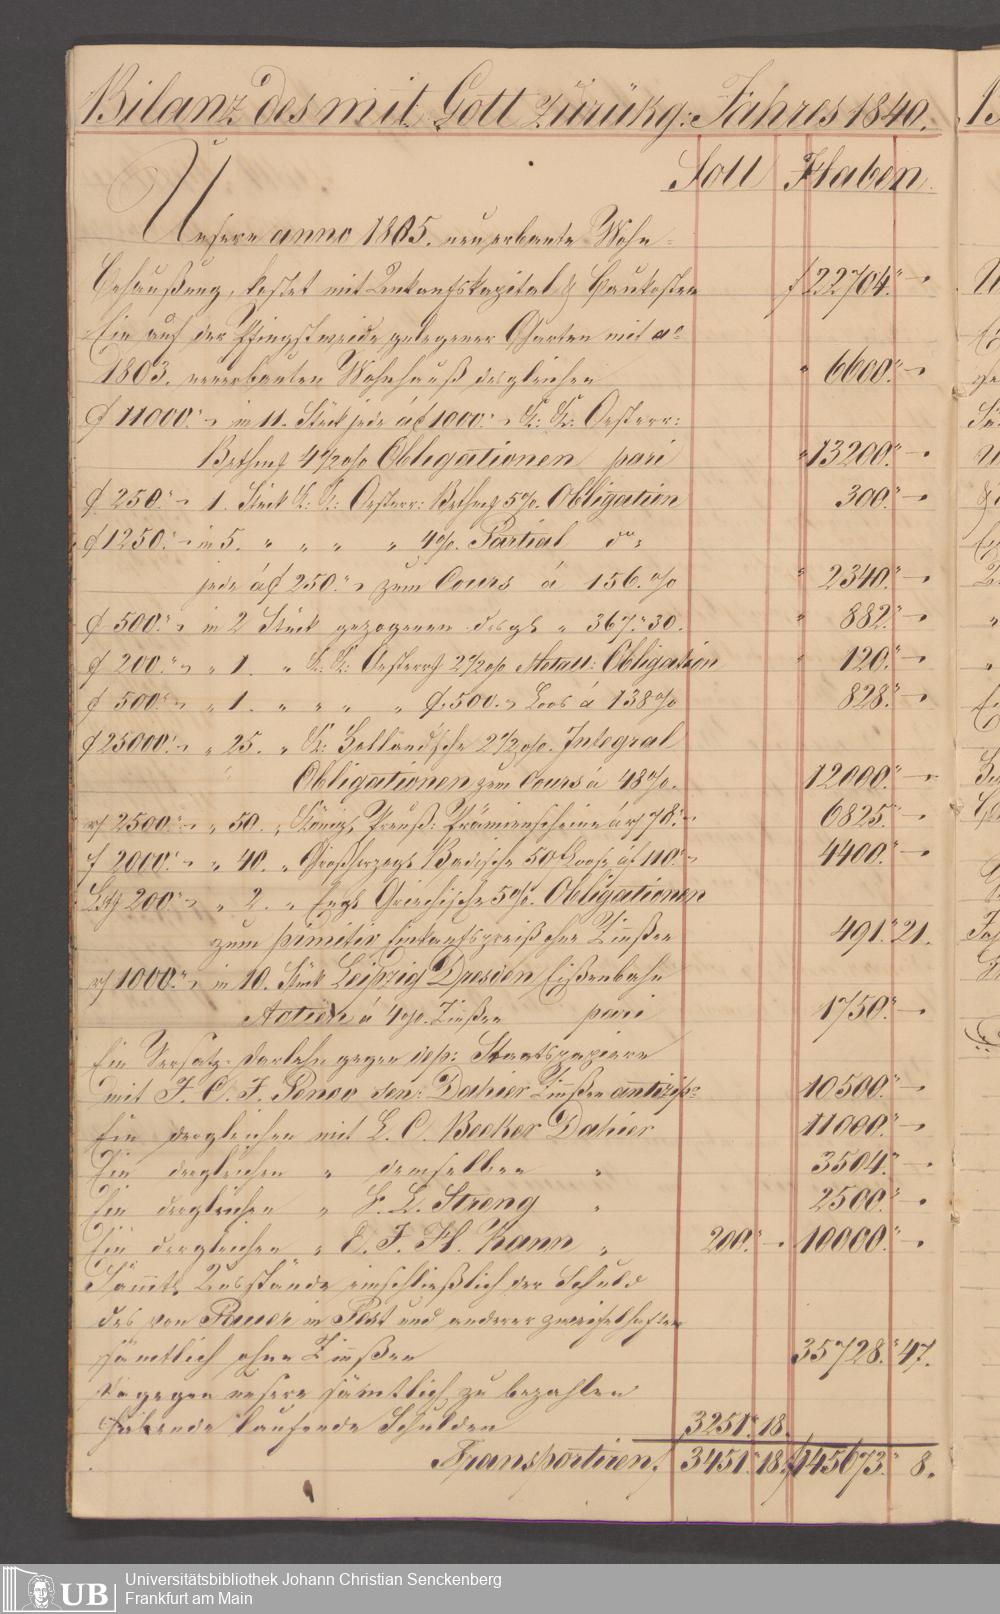 Bilanz des mit Gott Zurükg: Jahres 1840.
Soll Haben
Unsere anno 1805. neuerbaute Wohn-
Behaußung, kostet mit Ankaufskapital & Baukosten f 22704.″ –
Ein auf der Pfingstweide gelegener Garten mit ao
1803. neuerbauten Wohnhauß desgleichen " 6600.″ –
f 11000.″ – in 11. Stück jede á f 1000.″ – K: K: Oesterr:
Bethm 4 1/2 o/o Obligationen pari " 13200.″ –
f 250.″ – 1. Stück K. K: Oesterr: Bethm 5 %. Obligation 300.″ –
f 1250.″ – in 5. " " " " 4 %. Partial do:
jede á f 250.″ – zum Cours á 156. o/o " 2340.″ –
f 500.″ – in 2 Stück gezogenen desgl " 367.″ 30. " 882.″ –
f 200.″ – " 1. " K. K: Oesterr 2 1/2 o/o Metall: Obligation " 120.″ –
f 500.″ – " 1. " " " " f. 500. – Loos á 138 o/o 828.″ –
f 25000.″ – " 25. " K: Holländ'sche 2 1/2 o/o. Integral
Obligationen zum Cours á 48 o/o. 12000.″ –
rf 2500.″ – " 50. " Königl Preuß: Prämienscheine á rf 78.″ – 6825.″ –
f 2000.″ – " 40. " Großherzogl Badische 50 f Loose á f 110.″ – 4400.″ –
Lst 200.″ – " 2. " Engl Griechische 5 o/o. Obligationen
zum primitiv Einkaufspreiß ohne Zinßen 491.″ 21.
rf 1000.″ – in 10. Stück Leipzig Dresden Eißenbahn
Actien á 4 o/o. Zinßen pari 1750.″ –
Ein Versatz-Darlehn gegen dep: Staatspapiere
mit J. C. J. Penov sen: Dahier Zinßen antizip: 10500.″ –
Ein dergleichen mit L. C. Becker Dahier 11000.″ –
Ein dergleichen " demselben " 3504.″ –
Ein dergleichen " L. Streng " 2500.″ –
Ein dergleichen " C. J. H. Kann " 200.″ – 10000.″ –
Sämmtl Ausstände einschließlich der Schuld
des von in Pest und anderer zweifelhaften
sämtlich ohne Zinßen 35728.″ 47.
Dagegen unsere sämtlich zu bezahlen
habende laufende Schulden 3251.″ 18.
Transportiren f. 3451.″ 18. f 145673.″ 8.
UB Universitätsbibliothek Johann Christian Senckenberg
Frankfurt am Main